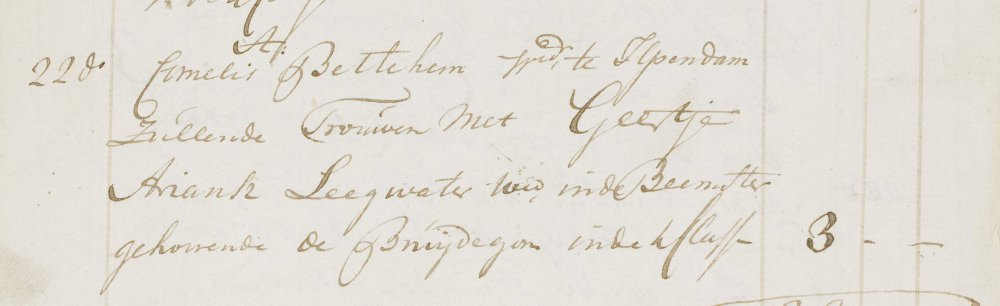 22 do. Cornelis St: Bettehem wedr. te Ilpendam
Zullende Trouwen Met Geertje
Ariansz Leegwater wed. inde Beemster
gehoorende de Bruijdegom inde 4 Classe 3 - -